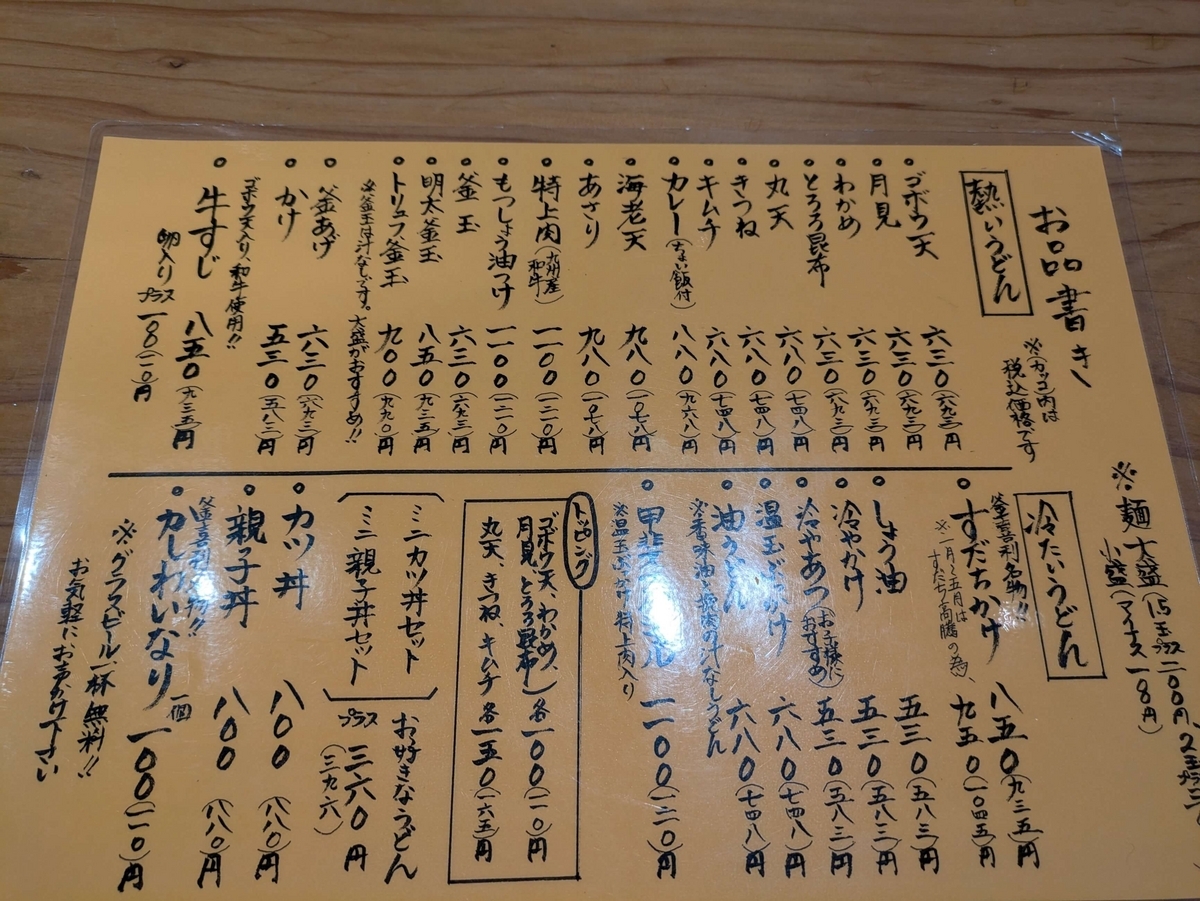 お品書き
※(カッコ)内は
税込価格です
熱いうどん
ゴボウ天 六三〇(六九三)円
月見 六三〇(六九三)円
わかめ 六三〇(六九三)円
とろろ昆布 六三〇(六九三)円
丸天 六八〇(七四八)円
きつね 六八〇(七四八)円
キムチ 六八〇(七四八)円
カレー(ちょい飯付) 八八〇(九六八)円
海老天 九八〇(一〇七八)円
あさり 九八〇(一〇七八)円
特上肉(九州産和牛) 一一〇〇(一二一〇)円
もつしょう油つけ 一一〇〇(一二一〇)円
釜玉 六三〇(六九三)円
明太釜玉 八五〇(九三五)円
トリュフ釜玉 九〇〇(九九〇)円
※釜玉は汁なしです。大盛がおすすめ!!
釜あげ 六三〇(六九三)円
かけ 五三〇(五八三)円
ゴボウ天入り、和牛使用!!
牛すじ 八五〇(九三五)円
卵入りプラス一〇〇(一一〇)円
※麺大盛(1.5玉プラス二〇〇円 2玉
小盛(マイナス
冷たいうどん
釜喜利名物!!
すだちかけ 八五〇(九三五)円
※一月〜五月は
すだち高騰の為、 九五〇(一〇四五)円
しょう油 五三〇(五八三)円
冷やかけ 五三〇(五八三)円
冷やあつ(お子様におすすめ) 五三〇(五八三)円
温玉ぶっかけ 六八〇(七四八)円
油うどん 六八〇(七四八)円
※香味油と の汁なしうどん
一一〇〇(一二一〇)円
※温玉ぶっかけ 特上肉入り
トッピング
ゴボウ天、わかめ、
月見、とろろ昆布 各一〇〇(一一〇)円
丸天、きつね、キムチ 各一五〇(一六五)円
ミニカツ丼セット
ミニ親子丼セット
お好きなうどん
プラス 三六〇円
(三九六)
カツ丼 八〇〇(八八〇)円
親子丼 八〇〇(八八〇)円
釜喜利名物!!
かしわいなり 一個 一〇〇(一一〇)円
※グラスビール一杯無料!!
お気軽にお声かけ下さい